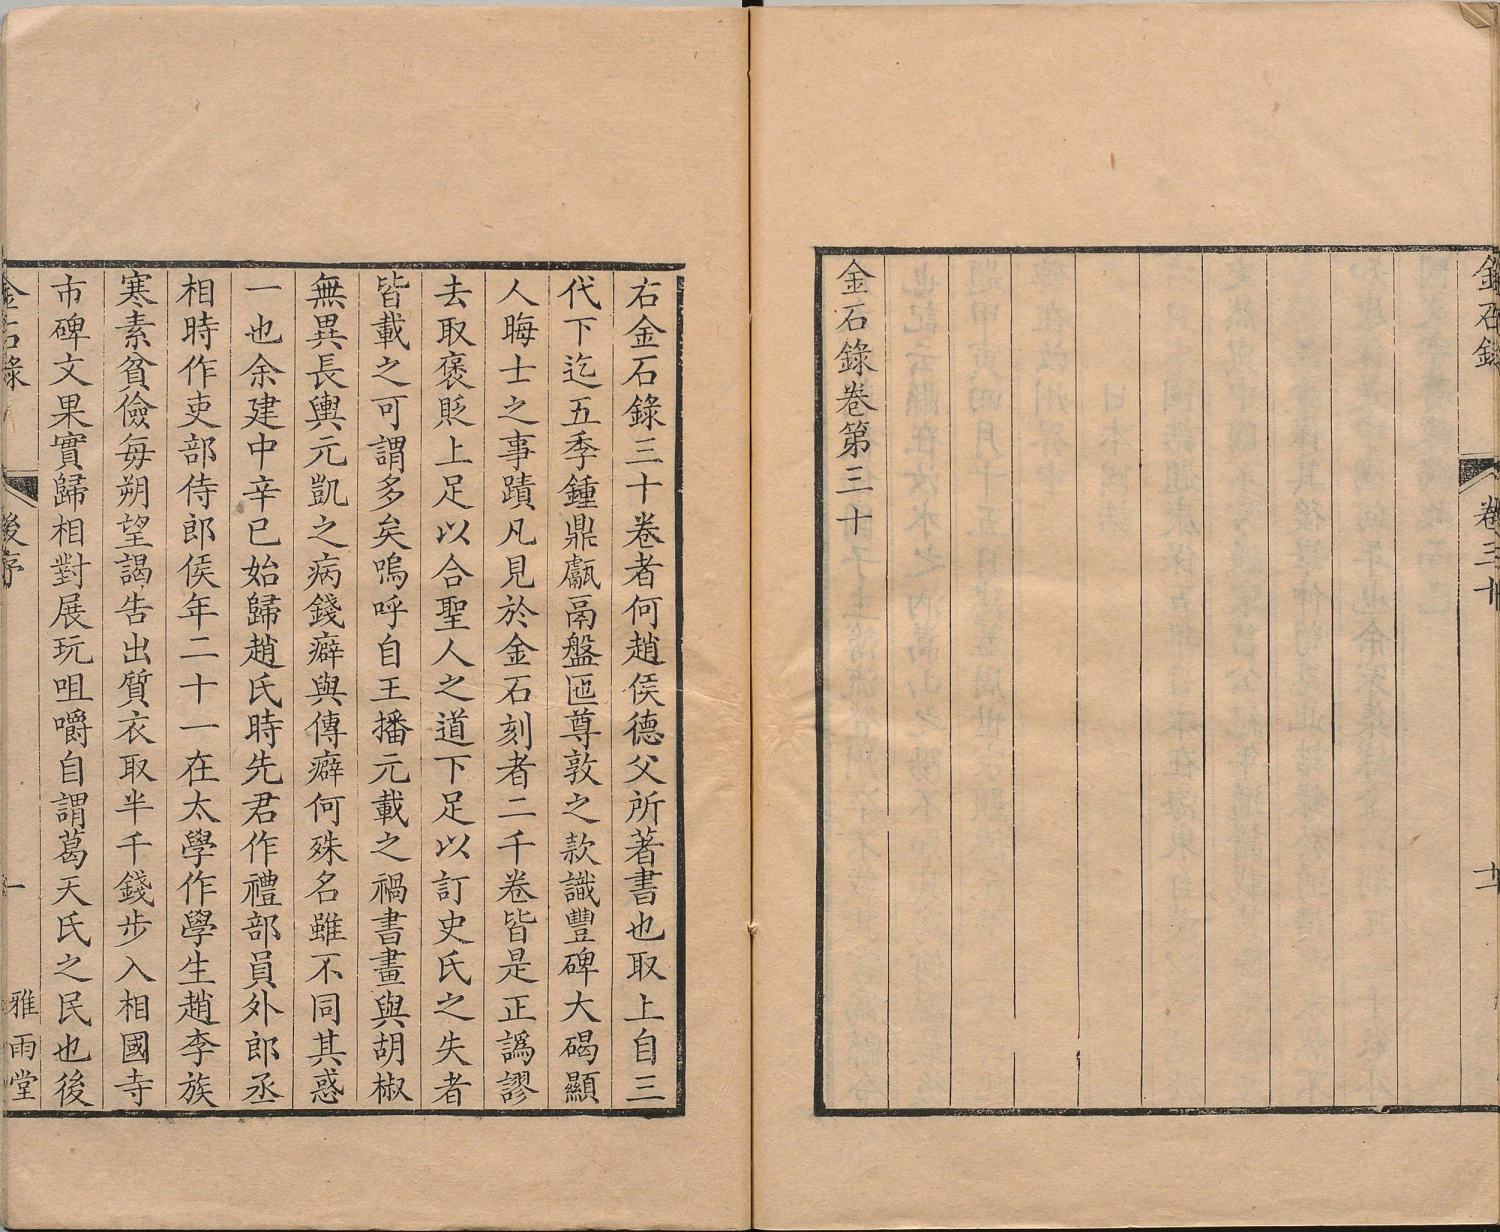 金石錄
卷三十
十一
金石錄卷第三十
右金石錄三十卷者何趙侯德父所著書也取上自三
代下迄五季鍾鼎甗鬲盤匜尊敦之款識豐碑大碣顯
人晦士之事蹟凡見於金石刻者二千卷皆是正譌謬
去取褒貶上足以合聖人之道下足以訂史氏之失者
皆載之可謂多矣嗚呼自王播元載之禍書畫與胡椒
無異長輿元凱之病錢癖與傳癖何殊名雖不同其惑
一也余建中辛巳始歸趙氏時先君作禮部員外郎丞
相時作吏部侍郎侯年二十一在太學作學生趙李族
寒素貧儉每朔望謁告出質衣取半千錢步入相國寺
市碑文果實歸相對展玩咀嚼自謂葛天氏之民也後
金石錄
後序
一
雅雨堂